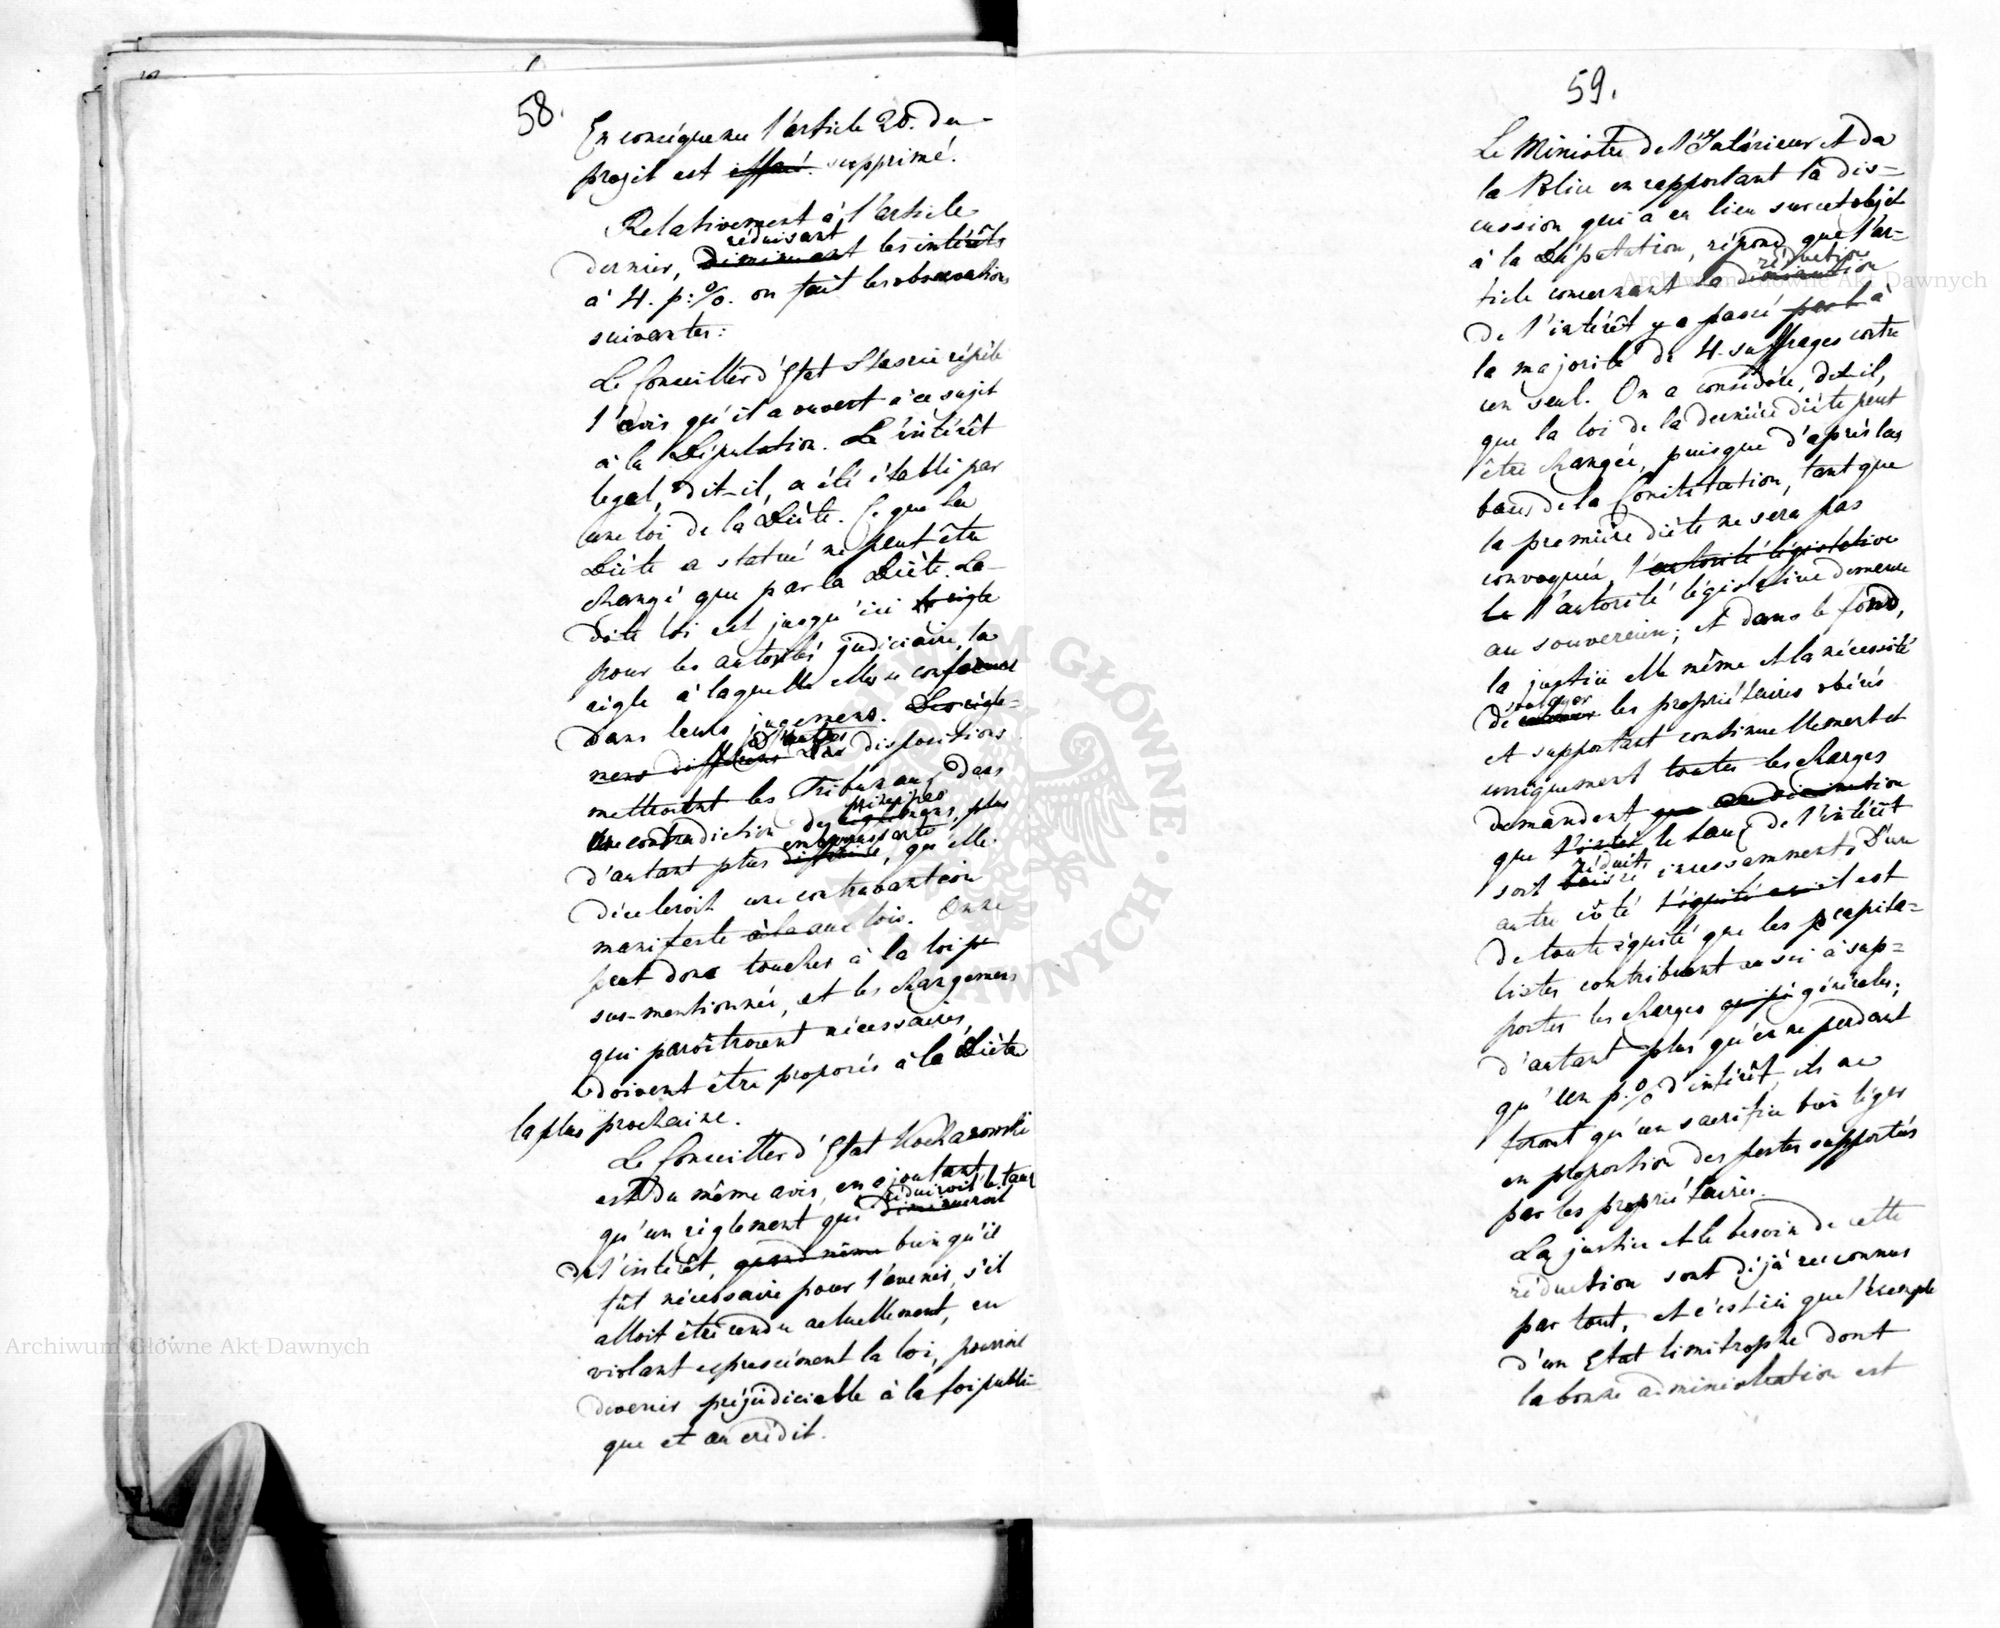 58.
En conséquence l'article 20. du
projet est effacé supprimé.
Relativement à l'article
réduisant
dernier, diminuant les intérêts
à 4. p:%. on fait les observations
suivantes:
Le Conseiller d'Etat Staszic répète
l'avis qu'il a ouvert à ce sujet
à la Députation. Le intérêt
legal, dit-il, a été établi par
une loi de la Diète. Ce que la
Diète a statué ne peut être
changé que par la Diète. La
dite loi est jusqu'ici la règle
pour les autorités judiciaire, la
règle à laquelle elles se conforment
dans leurs jugemens. Des règle-
d'autres
mens différens des dispositions
mettroient les Tribunaux dans
principes
une contradiction de règlemens, plus
embarassante
d'autant plus, qu'elle
décèleroit une contravention
manifeste à la aux lois. On ne
peut donc toucher à la loi
sus-mentionnée, et les changemens
qui paroîtroient nécessaires,
doivent être proposés à la Diète
la plus prochaine.
Le Conseiller d'Etat Kochanowski
est du même avis, en ajoutant,
réduiroit le taux
qu'un règlement qui diminueroit
de l'intérêt, quand même bien qu'il
fût nécessaire pour l'avenir, s'il
alloit être rendu actuellement, en
violant expressément la loi, pourroit
devenir préjudiciable à la foi publi-
que et au crédit.
59.
Le Ministre de l'Intérieur et de
la Police en rapportant la dis-
cussion qui a eu lieu sur cet objet
à la Députation, répond que l'ar-
réduction
ticle concernant la diminution
de l'intérêt y a passé par la à
la majorité de 4. suffrages contre
un seul. On a considéré, dit-il,
que la loi de la dernière diète peut
être changée, puisque d'après les
bases de la Constitution, tant que
la première diète ne sera pas
convoquée, l'autorité législative
le l'autorité législative demeure
au souverain; et dans le fond,
la justice elle même et la nécessité
soulager
de les propriétaires obérés
et supportant continuellement et
uniquement toutes les charges
demandent que diminution
que le taux de l'intérêt
réduit
soit baissé incessamment. D'un
autre côté l'équité il est
de toute équité que les capita-
listes contribuent aussi à sup-
porter les charges générales;
d'autant plus qu'en ne perdant
qu'un p.% d'intérêt, ils ne
feront qu'un sacrifice bien léger
en proportion des pertes supportées
par les propriétaires.
La justice et le besoin de cette
réduction sont déjà reconnus
par tout, et c'est ici que l'exemple
d'un Etat limitrophe dont
la bonne administration est
Archiwum Główne Akt Dawnych
Archiwum Główne Akt Dawnych
ARCHIWUM GŁÓWNE AKT DAWNYCH